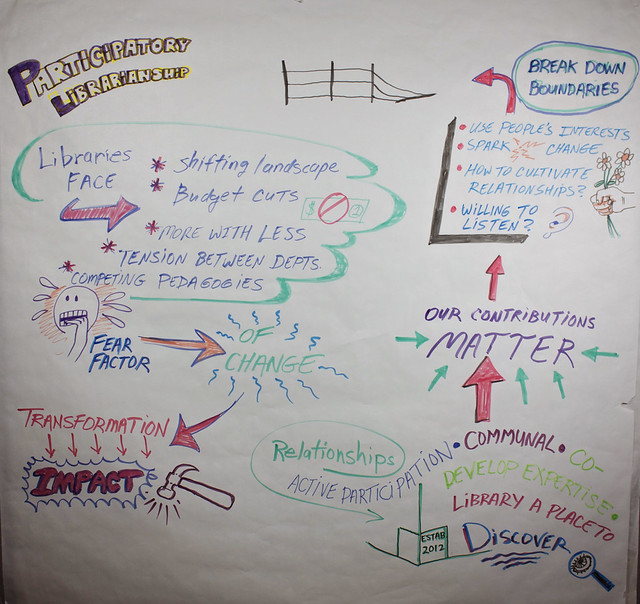 PARTICIPATORY
LIBRARIANSHIP
Libraries
FACE
* Shifting landscape
* Budget cuts
$ 1
* MORE WITH LESS
* TENSION BETWEEN DEPTS.
* COMPETING PEDAGOGIES
FEAR
FACTOR
OF
CHANGE
TRANSFORMATION
IMPACT
BREAK DOWN
BOUNDARIES
• USE PEOPLE'S INTERESTS
• SPARK CHANGE
• HOW TO CULTIVATE
RELATIONSHIPS?
• WILLING TO
LISTEN?
OUR CONTRIBUTIONS
MATTER
Relationships
ACTIVE PARTICIPATION • COMMUNAL • CO-
DEVELOP EXPERTISE •
LIBRARY A PLACE TO
DISCOVER
ESTAB
2012